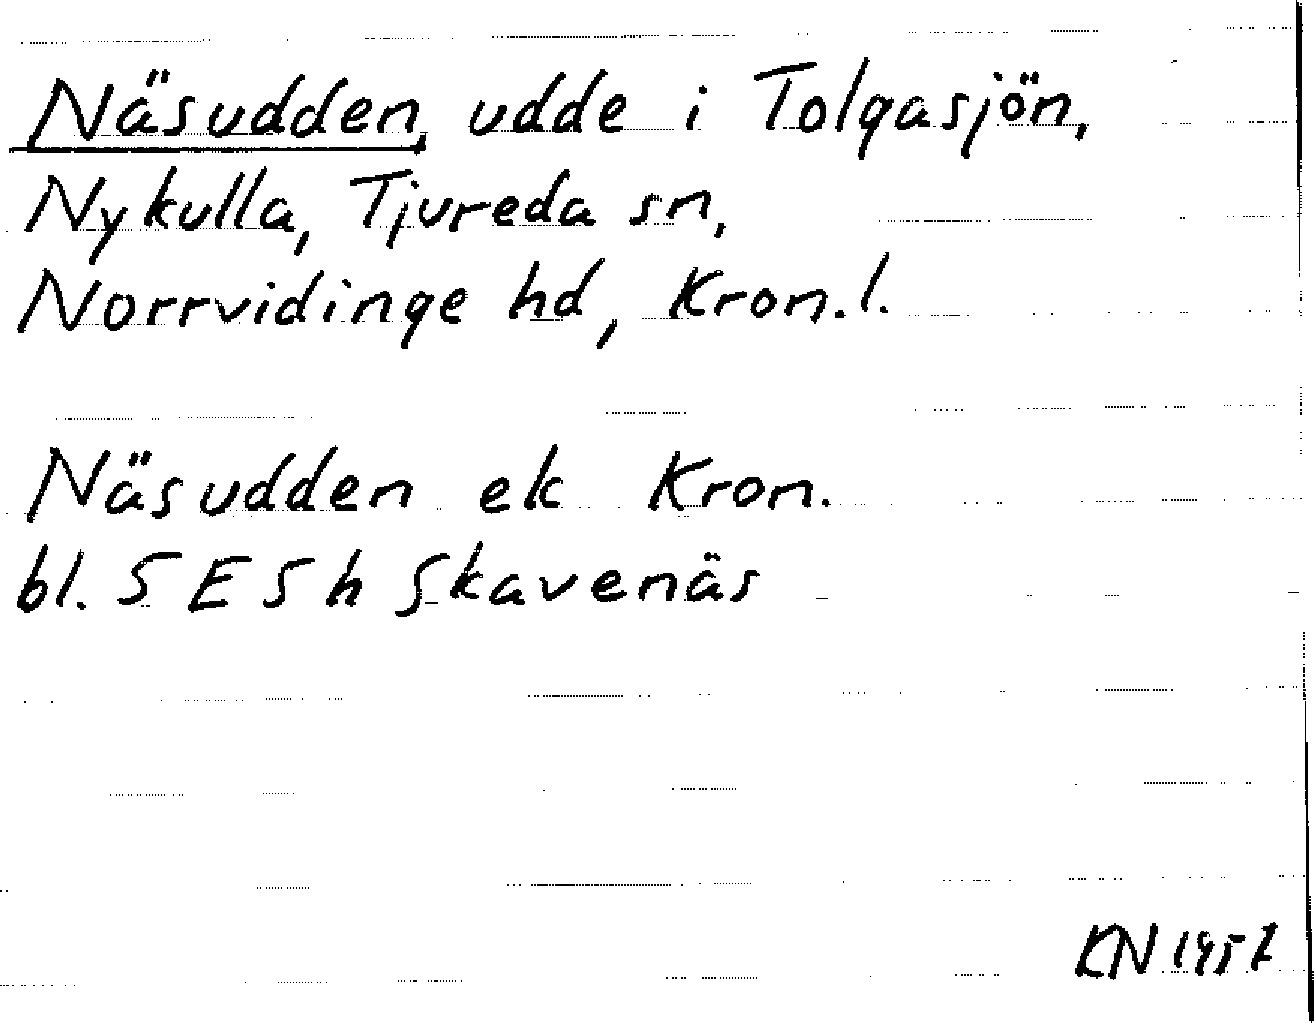 Näsudden, udde i Tolgasjön,
Nykulla, Tjureda sn,
Norrvidinge hd, Kron. l.
Näsudden ek Kron.
bl. 5 E 5 h Skavenäs
KN 1957